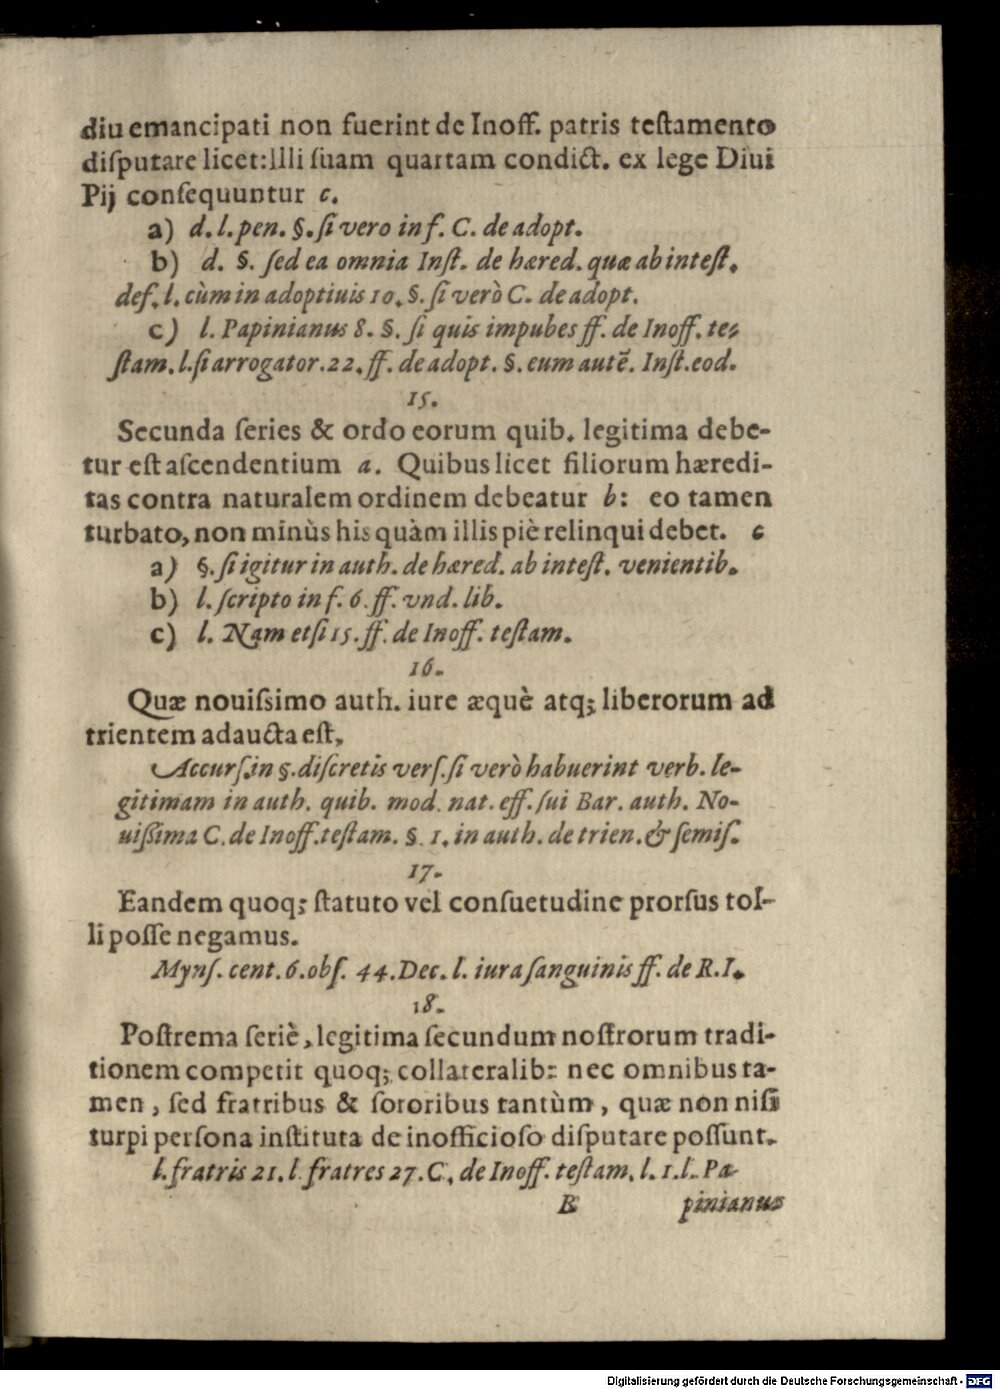 diu emancipati non fuerint de Inoff. patris teſtamento
diſputare licet: Illi ſuam quartam condict. ex lege Diui
Pij conſequuntur c.
a) d. l. pen. §. ſi vero in f. C. de adopt.
b) d. §. ſed ea omnia Inſt. de hæred. quæ ab inteſt.
def. l. cùm in adoptiuis 10. §. ſi verò C. de adopt.
c) l. Papinianus 8. §. ſi quis impubes ff. de Inoff. te-
ſtam. l. ſi arrogator. 22. ff. de adopt. §. eum autẽ. Inſt. eod.
15.
Secunda ſeries & ordo eorum quib. legitima debe-
tur eſt aſcendentium a. Quibus licet filiorum hæredi-
tas contra naturalem ordinem debeatur b: eo tamen
turbato, non minùs his quàm illis piè relinqui debet. c
a) §. ſi igitur in auth. de hæred. ab inteſt. venientib.
b) l. ſcripto in f. 6. ff. vnd. lib.
c) l. Nam etſi 15. ff. de Inoff. teſtam.
16.
Quæ nouiſsimo auth. iure æquè atq; liberorum ad
trientem adaucta eſt,
Accurſ. in §. diſcretis verſ. ſi verò habuerint verb. le-
gitimam in auth. quib. mod. nat. eff. ſui Bar. auth. No-
uißima C. de Inoff. teſtam. §. 1. in auth. de trien. & ſemiſ.
17.
Eandem quoq; ſtatuto vel conſuetudine prorſus tol-
li poſſe negamus.
Mynſ. cent. 6. obſ. 44. Dec. l. iura ſanguinis ff. de R. I.
18.
Poſtrema ſeriè, legitima ſecundum noſtrorum tradi-
tionem competit quoq; collateralib: nec omnibus ta-
men, ſed fratribus & ſororibus tantùm, quæ non niſi
turpi perſona inſtituta de inofficioſo diſputare poſſunt.
l. fratris 21. l. fratres 27. C. de Inoff. teſtam. l. 1. l. Pa-
B pinianus
Digitalisierung gefördert durch die Deutsche Forschungsgemeinschaft - DFG